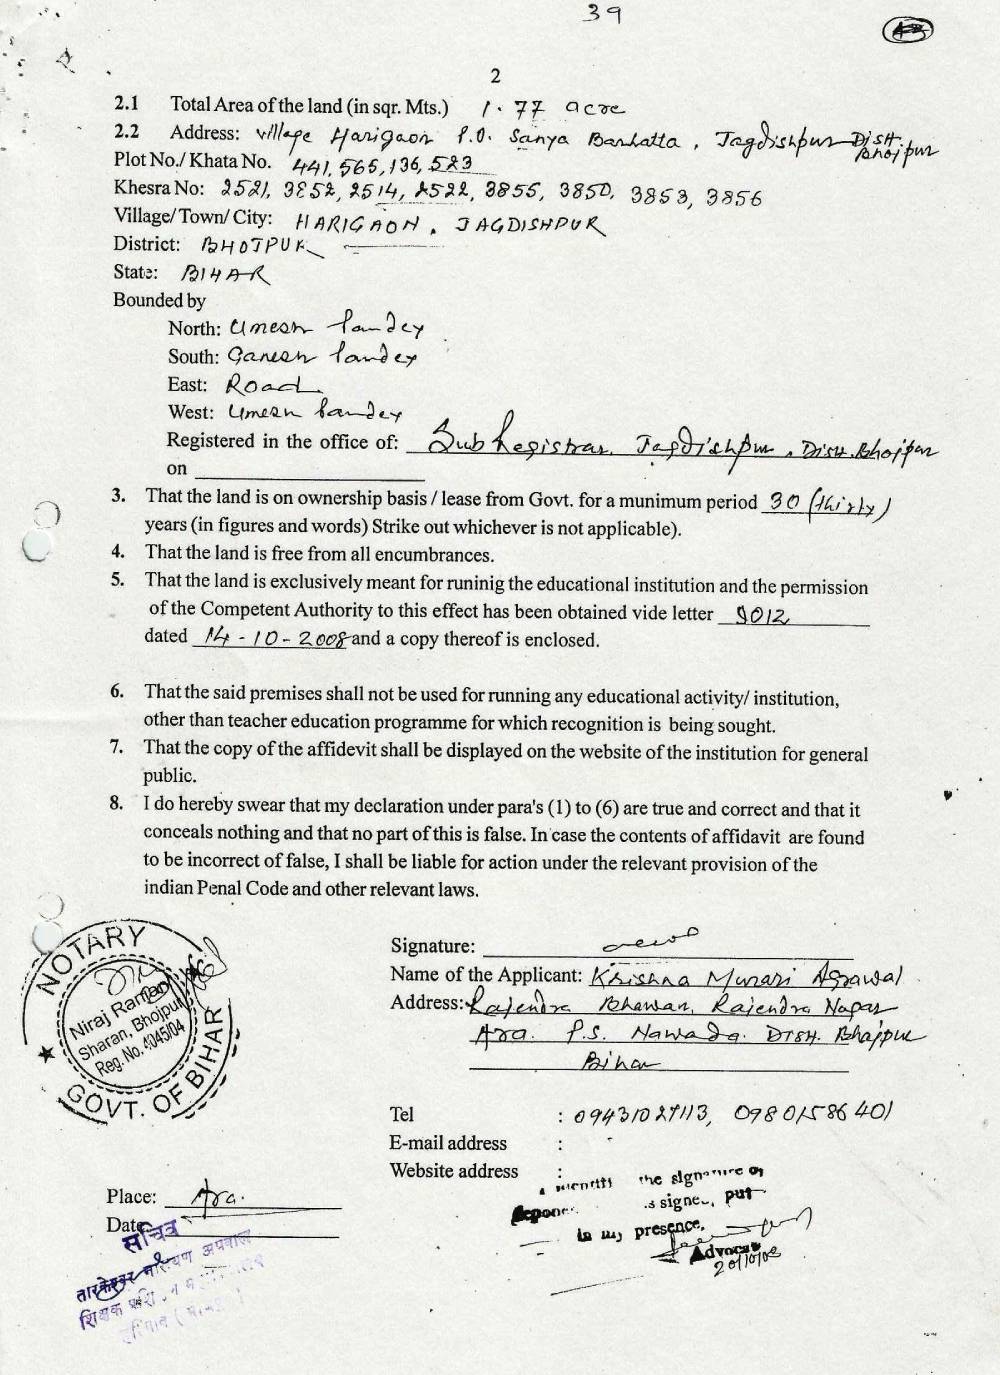 39
2
2.1 Total Area of the land (in sqr. Mts.) 1.77 acre
2.2 Address: village Harigaon P.O. Sanya Barhatta, Jagdishpur Distt. Bhojpur
Plot No./ Khata No. 441, 565, 136, 523
Khesra No: 2521, 3852, 2514, 2522, 3855, 3850, 3853, 3856
Village/ Town/ City: HARIGAON, JAGDISHPUR
District: BHOJPUR
State: BIHAR
Bounded by
North: Umesh Pandey
South: Ganesh Pandey
East: Road
West: Umesh Pandey
Registered in the office of: Sub Registrar, Jagdishpur, Distt. Bhojpur
on
3. That the land is on ownership basis / lease from Govt. for a munimum period 30 (thirty)
years (in figures and words) Strike out whichever is not applicable).
4. That the land is free from all encumbrances.
5. That the land is exclusively meant for runinig the educational institution and the permission
of the Competent Authority to this effect has been obtained vide letter 9012
dated 14-10-2008 and a copy thereof is enclosed.
6. That the said premises shall not be used for running any educational activity/ institution,
other than teacher education programme for which recognition is being sought.
7. That the copy of the affidevit shall be displayed on the website of the institution for general
public.
8. I do hereby swear that my declaration under para's (1) to (6) are true and correct and that it
conceals nothing and that no part of this is false. In case the contents of affidavit are found
to be incorrect of false, I shall be liable for action under the relevant provision of the
indian Penal Code and other relevant laws.
NOTARY
Niraj Raman
Sharan, Bhojpur
Reg. No. 4045/04
GOVT. OF BIHAR
Signature:
Name of the Applicant: Krishna Murari Agrawal
Address: Rajendra Bhawan, Rajendra Nagar
Ara. P.S. Nawada. Distt. Bhojpur
Bihar
Tel : 09431027113, 09801586401
E-mail address :
Website address :
the signature of
signe, put
in my presence.
Advocate
20/10/08
Place: Ara.
Date
सचिव
तारकेश्वर नारायण अग्रवाल
शिक्षक